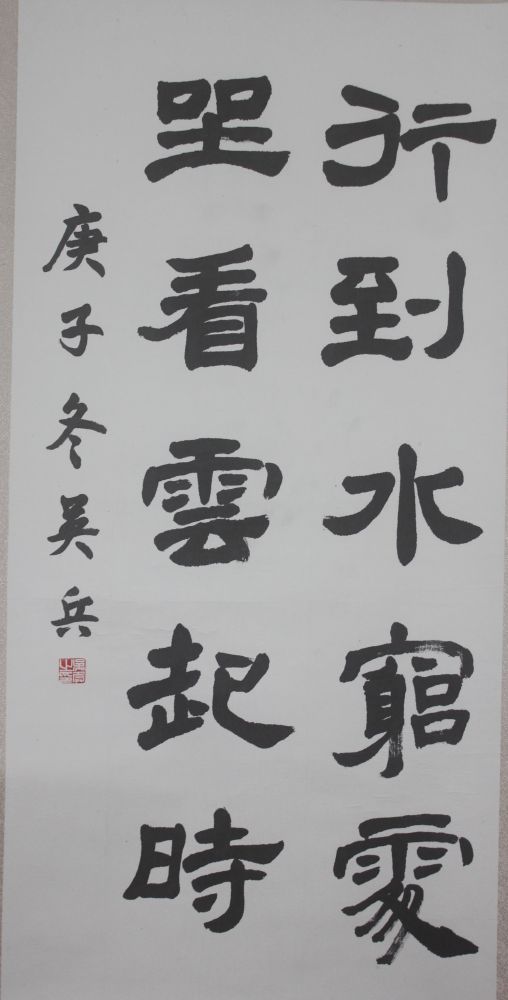 行到水窮處
坐看雲起時
庚子冬吴兵